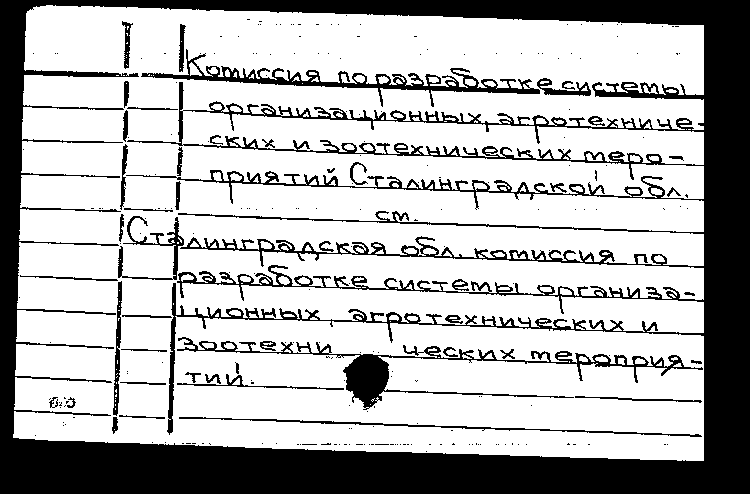 Комиссия по разработке системы
организационных, агротехниче-
ских и зоотехнических меро-
приятий Сталинградской обл.
см.
Сталинградская обл. комиссия по
разработке системы организа-
ционных, агротехнических и
зоотехни ческих мероприя-
тий.